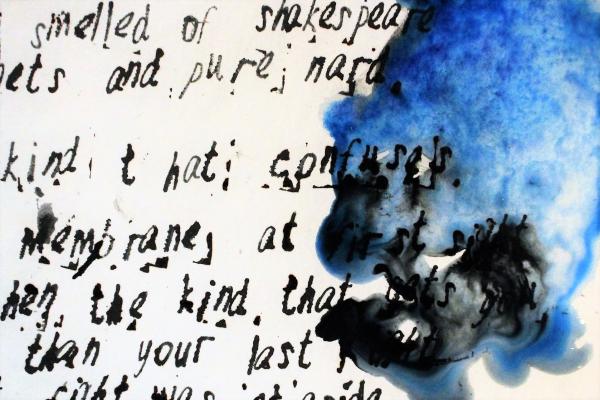 smelled of shakespeare
ets and pure, nard,
kind that confuses.
membranes at first sight
hen the kind that gets you,
than your last
was